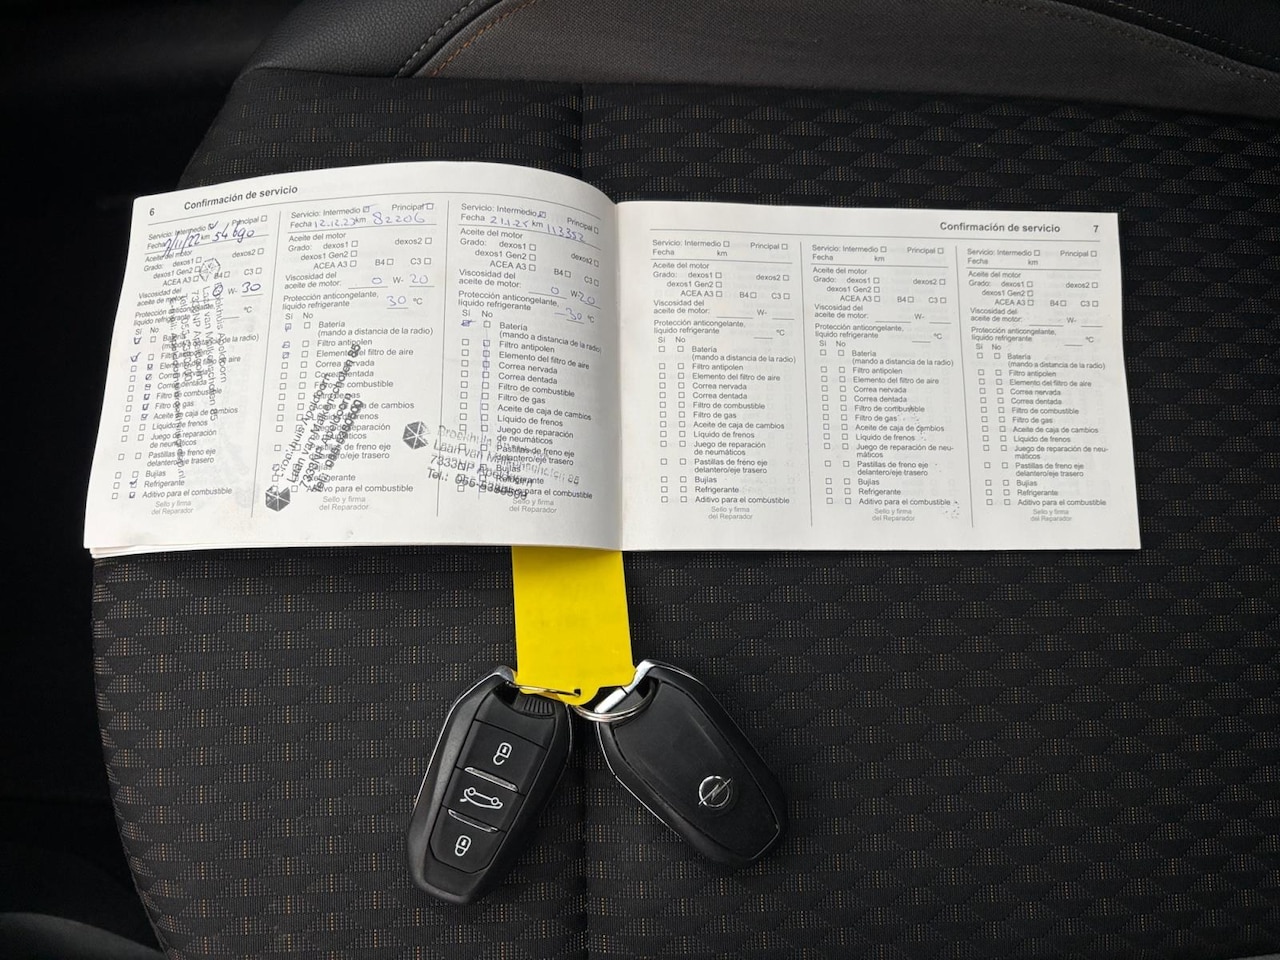 6 Confirmación de servicio
Servicio: Intermedio Principal
Fecha 7/11/22 km 54690
Aceite del motor
Grado: dexos1 dexos2
dexos1 Gen2
ACEA A3 B4 C3
Viscosidad del
aceite de motor: 0 W- 30
Protección anticongelante,
líquido refrigerante °C
Sí No
Batería
(mando a distancia de la radio)
Filtro antipolen
Elemento del filtro de aire
Correa nervada
Correa dentada
Filtro de combustible
Filtro de gas
Aceite de caja de cambios
Líquido de frenos
Juego de reparación
de neumáticos
Pastillas de freno eje
delantero/eje trasero
Bujías
Refrigerante
Aditivo para el combustible
Sello y firma
del Reparador
Servicio: Intermedio Principal
Fecha 12.12.23 km 82206
Aceite del motor
Grado: dexos1 dexos2
dexos1 Gen2
ACEA A3 B4 C3
Viscosidad del
aceite de motor: 0 W- 20
Protección anticongelante,
líquido refrigerante 30 °C
Sí No
Batería
(mando a distancia de la radio)
Filtro antipolen
Elemento del filtro de aire
Correa nervada
Correa dentada
Filtro de combustible
Filtro de gas
Aceite de caja de cambios
Líquido de frenos
Juego de reparación
de neumáticos
Pastillas de freno eje
delantero/eje trasero
Refrigerante
Aditivo para el combustible
Sello y firma
del Reparador
Servicio: Intermedio Principal
Fecha 21.1.25 km 113352
Aceite del motor
Grado: dexos1 dexos2
dexos1 Gen2
ACEA A3 B4 C3
Viscosidad del
aceite de motor: 0 W- 20
Protección anticongelante,
líquido refrigerante 30 °C
Sí No
Batería
(mando a distancia de la radio)
Filtro antipolen
Elemento del filtro de aire
Correa nervada
Correa dentada
Filtro de combustible
Filtro de gas
Aceite de caja de cambios
Líquido de frenos
Juego de reparación
de neumáticos
Pastillas de freno eje
delantero/eje trasero
Bujías
Refrigerante
Aditivo para el combustible
Sello y firma
del Reparador
Confirmación de servicio 7
Servicio: Intermedio Principal
Fecha km
Aceite del motor
Grado: dexos1 dexos2
dexos1 Gen2
ACEA A3 B4 C3
Viscosidad del
aceite de motor: W-
Protección anticongelante,
líquido refrigerante °C
Sí No
Batería
(mando a distancia de la radio)
Filtro antipolen
Elemento del filtro de aire
Correa nervada
Correa dentada
Filtro de combustible
Filtro de gas
Aceite de caja de cambios
Líquido de frenos
Juego de reparación
de neumáticos
Pastillas de freno eje
delantero/eje trasero
Bujías
Refrigerante
Aditivo para el combustible
Sello y firma
del Reparador
Servicio: Intermedio Principal
Fecha km
Aceite del motor
Grado: dexos1 dexos2
dexos1 Gen2
ACEA A3 B4 C3
Viscosidad del
aceite de motor: W-
Protección anticongelante,
líquido refrigerante °C
Sí No
Batería
(mando a distancia de la radio)
Filtro antipolen
Elemento del filtro de aire
Correa nervada
Correa dentada
Filtro de combustible
Filtro de gas
Aceite de caja de cambios
Líquido de frenos
Juego de reparación de neu-
máticos
Pastillas de freno eje
delantero/eje trasero
Bujías
Refrigerante
Aditivo para el combustible
Sello y firma
del Reparador
Servicio: Intermedio Principal
Fecha km
Aceite del motor
Grado: dexos1 dexos2
dexos1 Gen2
ACEA A3 B4 C3
Viscosidad del
aceite de motor: W-
Protección anticongelante,
líquido refrigerante °C
Sí No
Batería
(mando a distancia de la radio)
Filtro antipolen
Elemento del filtro de aire
Correa nervada
Correa dentada
Filtro de combustible
Filtro de gas
Aceite de caja de cambios
Líquido de frenos
Juego de reparación de neu-
máticos
Pastillas de freno eje
delantero/eje trasero
Bujías
Refrigerante
Aditivo para el combustible
Sello y firma
del Reparador